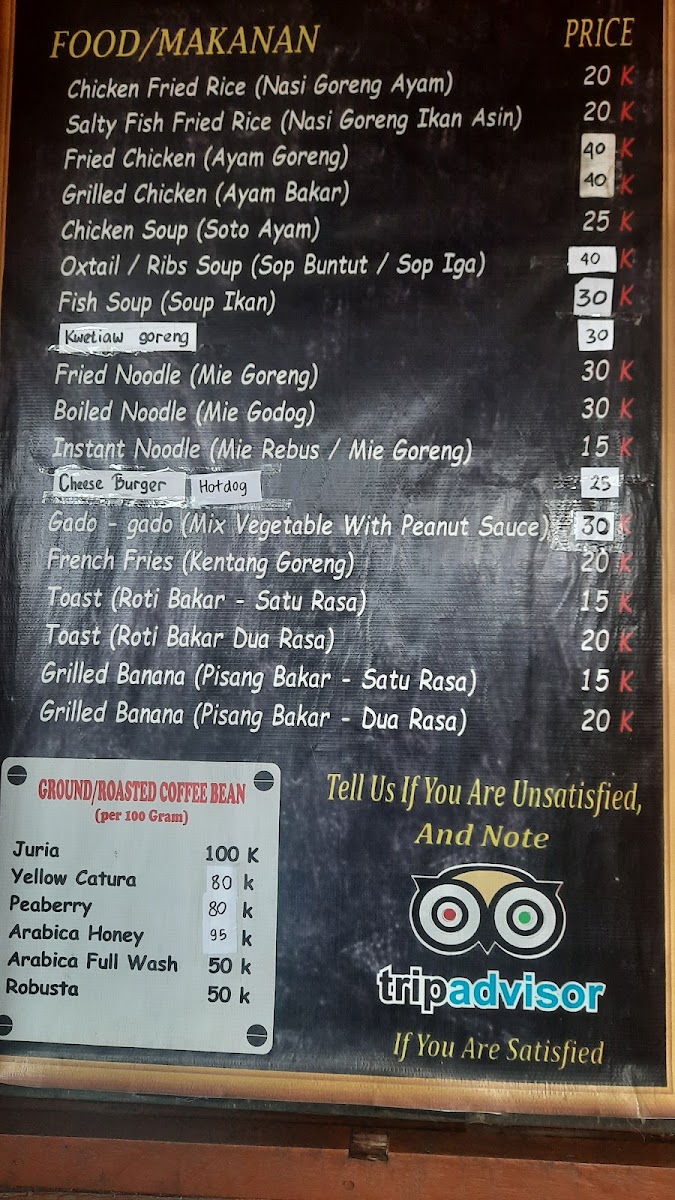 FOOD/MAKANAN PRICE
Chicken Fried Rice (Nasi Goreng Ayam) 20 K
Salty Fish Fried Rice (Nasi Goreng Ikan Asin) 20 K
Fried Chicken (Ayam Goreng) 40 K
Grilled Chicken (Ayam Bakar) 40 K
Chicken Soup (Soto Ayam) 25 K
Oxtail / Ribs Soup (Sop Buntut / Sop Iga) 40 K
Fish Soup (Soup Ikan) 30 K
Kwetiaw goreng 30
Fried Noodle (Mie Goreng) 30 K
Boiled Noodle (Mie Godog) 30 K
Instant Noodle (Mie Rebus / Mie Goreng) 15 K
Cheese Burger Hotdog 25
Gado - gado (Mix Vegetable With Peanut Sauce) 30 K
French Fries (Kentang Goreng) 20 K
Toast (Roti Bakar - Satu Rasa) 15 K
Toast (Roti Bakar Dua Rasa) 20 K
Grilled Banana (Pisang Bakar - Satu Rasa) 15 K
Grilled Banana (Pisang Bakar - Dua Rasa) 20 K
GROUND/ROASTED COFFEE BEAN
(per 100 Gram)
Juria 100 K
Yellow Catura 80 k
Peaberry 80 k
Arabica Honey 95 k
Arabica Full Wash 50 k
Robusta 50 k
Tell Us If You Are Unsatisfied,
And Note
tripadvisor
If You Are Satisfied